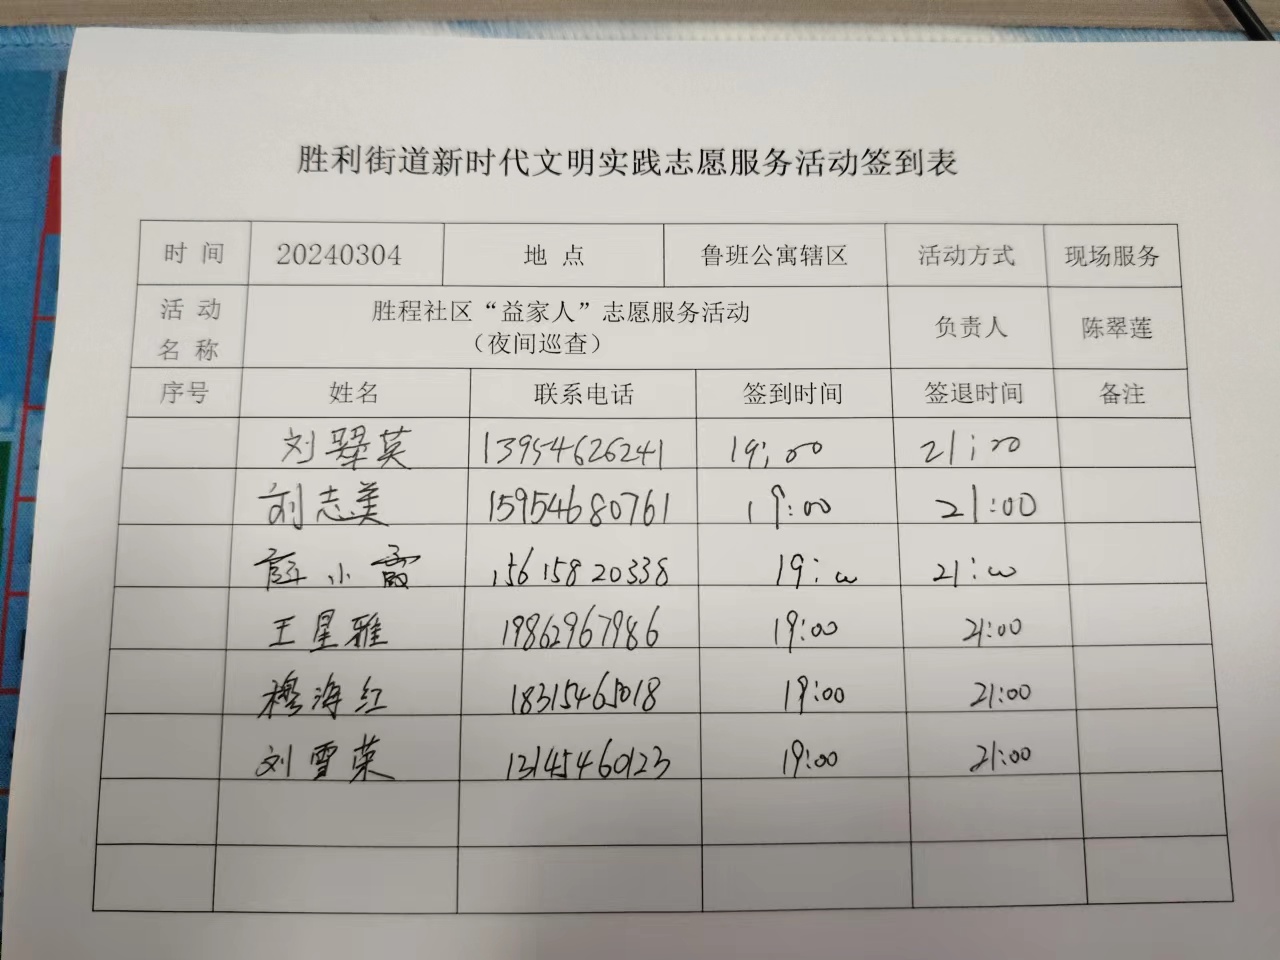 胜利街道新时代文明实践志愿服务活动签到表
时 间 20240304 地 点 鲁班公寓辖区 活动方式 现场服务
活 动 名 称 胜程社区“益家人”志愿服务活动 负责人 陈翠莲
（夜间巡查）
序号 姓名 联系电话 签到时间 签退时间 备注
刘翠英 13954626241 19:00 21:00
刘志美 15954680761 19:00 21:00
薛小霞 15615820338 19:00 21:00
王星雅 19862967986 19:00 21:00
穆海红 18315465018 19:00 21:00
刘雪荣 13145460123 19:00 21:00